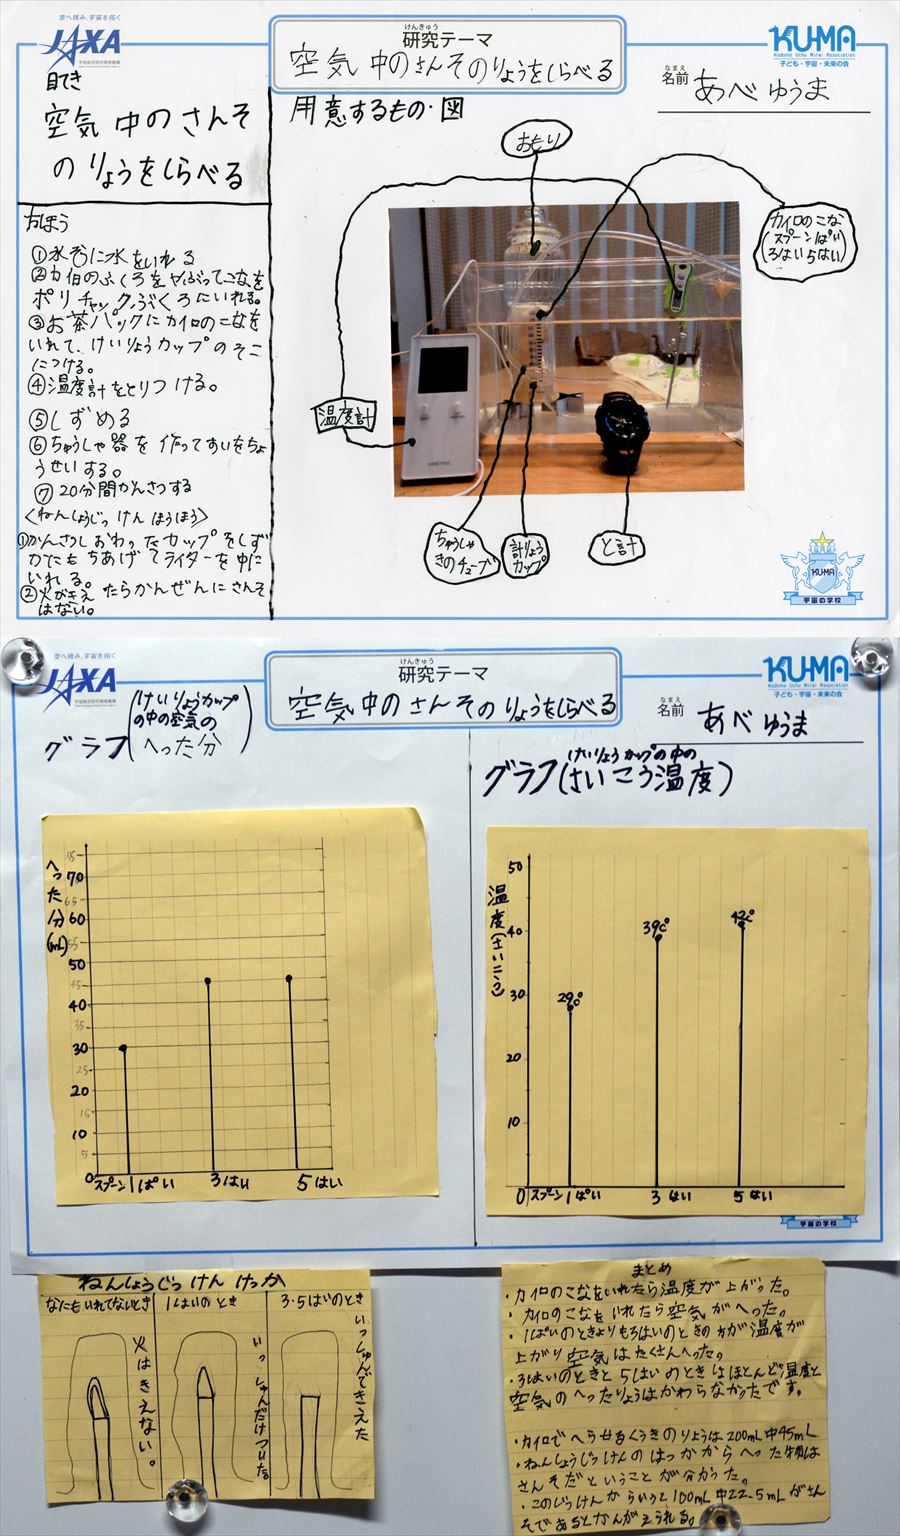 空へ挑み、宇宙を拓く
JAXA
宇宙航空研究開発機構
けんきゅう
研究テーマ
空気中のさんそのりょうをしらべる
KUMA
Kodomo Uchu Mirai Association
子ども・宇宙・未来の会
なまえ
名前 あべ ゆうま
目てき
空気中のさんそ
のりょうをしらべる
方ほう
①水そうに水をいれる
②カイロのふくろをやぶってこなを
ポリチャックぶくろにいれる。
③お茶パックにカイロのこなを
いれて、けいりょうカップのそこ
につける。
④温度計をとりつける。
⑤しずめる
⑥ちゅうしゃ器を作ってすいをちょ
うせいする。
⑦20分間かんさつする
〈ねんしょうじっけんほうほう〉
①かんさつしおわったカップをしず
かにもちあげてライターを中に
いれる。
②火がきえたらかんぜんにさんそ
はない。
用意するもの・図
おもり
カイロのこな
(スプーン1ぱい
3ばい5はい)
温度計
ちゅうしゃ
きのチューブ
計りょう
カップ
と計
KUMA
宇宙の学校
空へ挑み、宇宙を拓く
JAXA
宇宙航空研究開発機構
けんきゅう
研究テーマ
空気中のさんそのりょうをしらべる
KUMA
Kodomo Uchu Mirai Association
子ども・宇宙・未来の会
なまえ
名前 あべ ゆうま
グラフ(けいりょうカップ
の中の空気の
へった分)
へった分(mL)
75
70
65
60
55
50
45
40
35
30
25
20
15
10
5
0 スプーン1ぱい 3ばい 5はい
けいりょうカップの中の
グラフ(さいこう温度)
温度(さいこう)
50
40
30
20
10
29℃
39℃
42℃
0 スプーン1ぱい 3ばい 5はい
宇宙の学校
ねんしょうじっけんけっか
なにもいれてないとき
火はきえない。
1ぱいのとき
いっしゅんだけついた。
3・5はいのとき
いっしゅんできえた
まとめ
・カイロのこなをいれたら温度が上がった。
・カイロのこなをいれたら空気がへった。
・1ぱいのときより3ばいのときの方が温度が
上がり空気はたくさんへった。
・3ばいのときと5はいのときはほとんど温度と
空気のへったりょうはかわらなかったです。
・カイロでへらせるくうきのりょうは200mL中45mL
・ねんしょうじっけんのけっかからへった物は
さんそだということが分かった。
・このじっけんからいうと100mL中22.5mLがさん
そであるとかんがえられる。